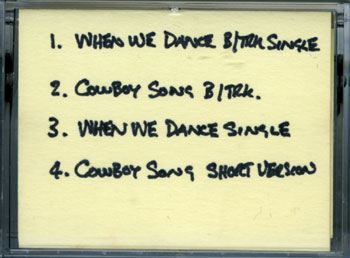 1. WHEN WE DANCE B/TRK SINGLE
2. COWBOY SONG B/TRK.
3. WHEN WE DANCE SINGLE
4. COWBOY SONG SHORT VERSION